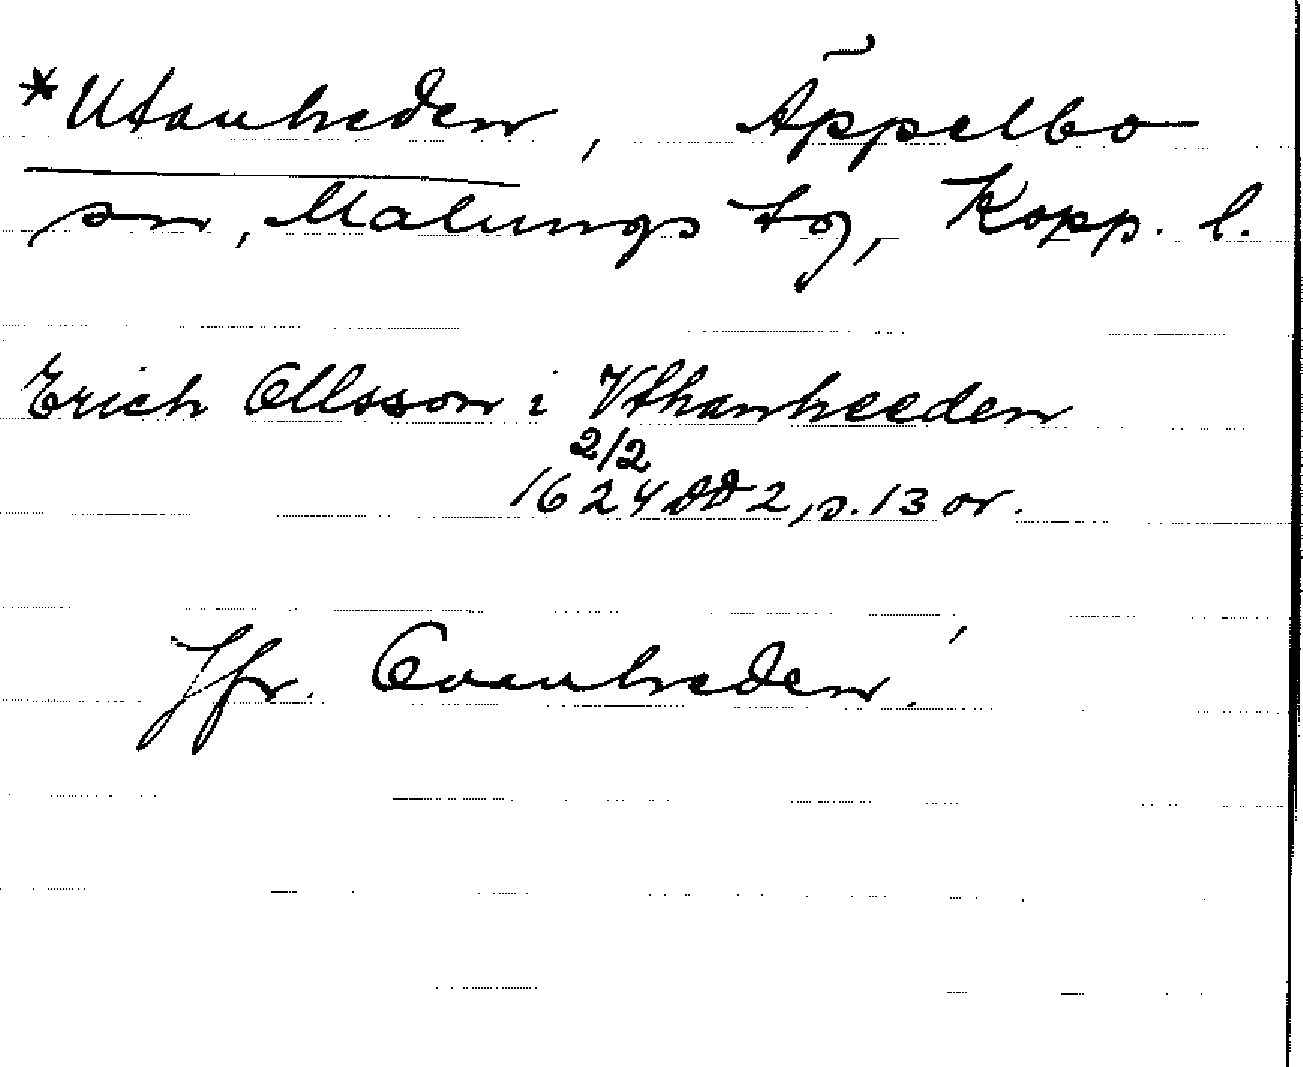 *Utanheden, Äppelbo
sn, Malungs tg, Kopp. l.
Erich Ollsson i Vthanheeden
2/2
1624 DD 2, s. 13 or.
Jfr. Ovanheden.